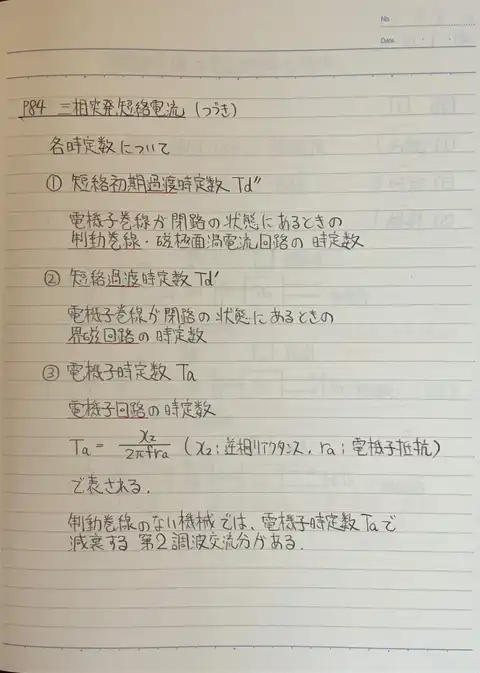 No.
Date
P84 三相突発短絡電流 (つづき)
各時定数について
① 短絡初期過渡時定数 Td″
電機子巻線が閉路の状態にあるときの
制動巻線・磁極面渦電流回路の時定数
② 短絡過渡時定数 Td′
電機子巻線が閉路の状態にあるときの
界磁回路の時定数
③ 電機子時定数 Ta
電機子回路の時定数
Ta = x2 / 2πfra (x2 ; 逆相リアクタンス, ra ; 電機子抵抗)
で表される.
制動巻線のない機械では、電機子時定数 Ta で
減衰する 第2調波交流分がある.